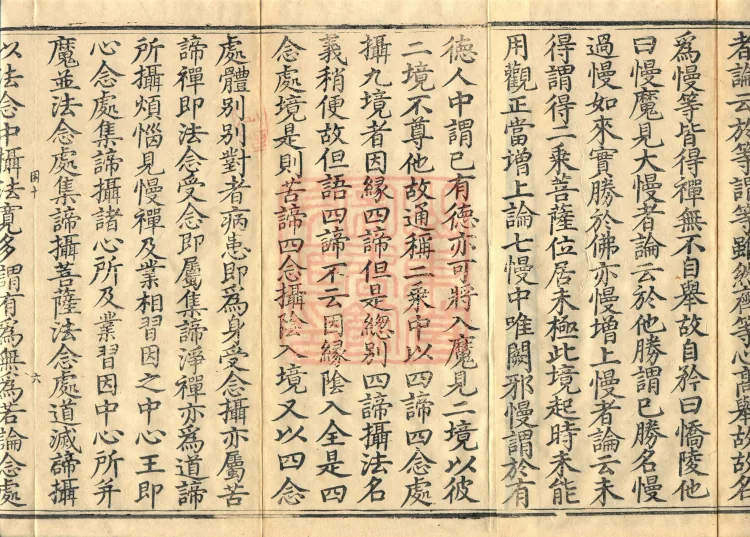 者論云於等謂等雖然齊等心高舉故故名
爲慢等皆得禪無不自舉故自矜曰憍陵他
曰慢魔見大慢者論云於他勝謂已勝名慢
過慢如來實勝於佛亦慢增上慢者論云未
得謂得二乘菩薩位居未極此境起時未能
用觀正當增上論七慢中唯闕邪慢謂於有
德人中謂已有德亦可將入魔見二境以彼
二境不尊他故通稱二乘中以四諦四念處
攝九境者因緣四諦但是總別四諦攝法名
義稍便故但語四諦不云因緣陰入全是四
念處境是則苦諦四念攝陰入境又以四念
處體別別對者病患即爲身受念攝亦屬苦
諦禪即法念受念即屬集諦淨禪亦爲道諦
所攝煩惱見慢禪及業相習因之中心王即
心念處集諦攝諸心所及業習因中心所并
魔並法念處集諦攝菩薩法念處道滅諦攝
因十
六
以法念中攝法寬多謂有爲無爲若論念處